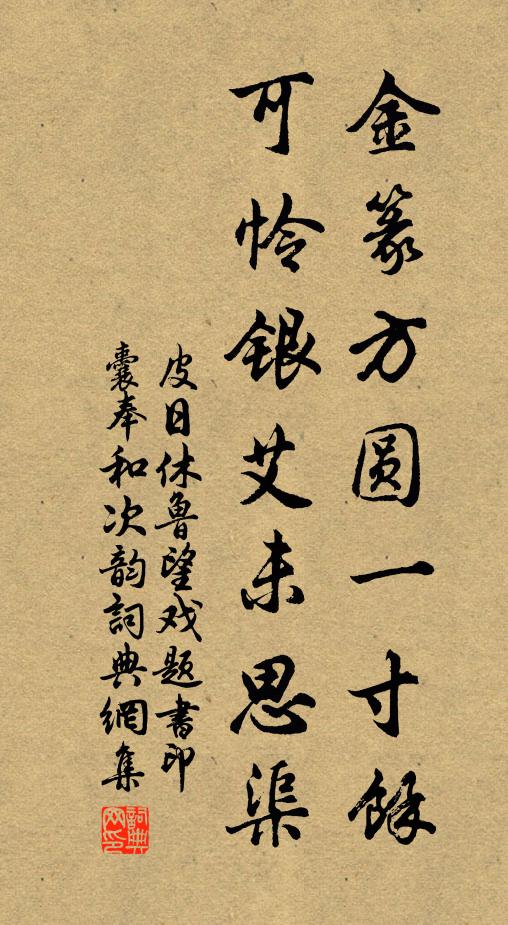 金篆方圆一寸餘
可怜銀艾未思渠
皮日休魯望戏题書印
囊奉和次韵詞典網集
詞典网印